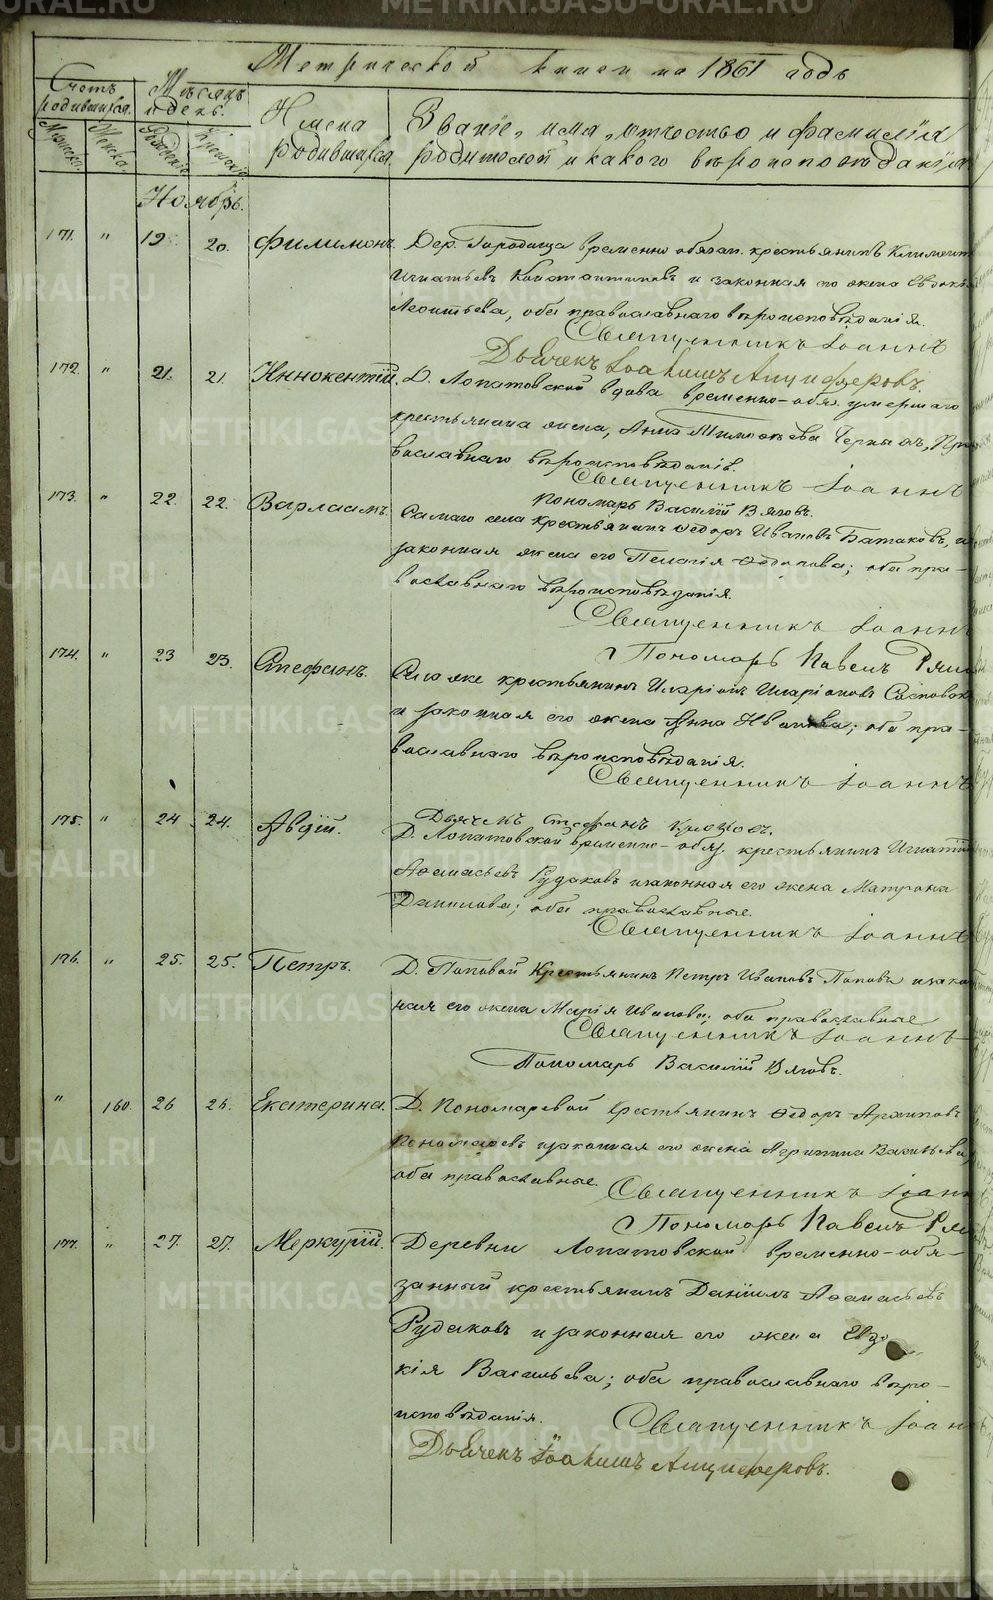 Метрической книги на 1861 годъ
Счетъ родившихся.
Мѣсяцъ и день.
Имена родившихся.
Званіе, имя, отчество и фамилія
родителей и какого вѣроисповѣданія
Мужеска.
Женска.
Рожденія
Крещенія
Ноябрь.
171. " 19. 20. Филимонъ. Дер. Городища временно обязан. крестьянинъ Климентъ
Игнатьевъ Константиновъ и законная его жена Евдокія
Леонтьева, оба православнаго вѣроисповѣданія.
Священникъ Іоаннъ
Дьячекъ Іоакимъ Анциферовъ.
172. " 21. 21. Иннокентій. Д. Лопатовской вдова временно-обяз. умершаго
крестьянина жена, Анна Тимофеева Черныхъ, Пра-
вославнаго вѣроисповѣданія.
Священникъ Іоаннъ
Пономарь Василій Вяговъ.
173. " 22. 22. Варлаамъ. Самаго села крестьянинъ Ѳедоръ Ивановъ Батаковъ, и
законная жена его Пелагія Ѳедотова; оба пра-
вославнаго вѣроисповѣданія.
Священникъ Іоаннъ
Пономарь Павелъ
174. " 23 23. Стефанъ. Села же крестьянинъ Иларіонъ Иларіоновъ
и законная его жена Анна Иванова; оба пра-
вославнаго вѣроисповѣданія.
Священникъ Іоаннъ
Дьячекъ Стефанъ
175. " 24 24. Авдій. Д. Лопатовской временно-обяз. крестьянинъ Игнатій
Аѳанасьевъ Рудаковъ и законная его жена Матрона
Данилова; оба православные.
Священникъ Іоаннъ
176. " 25. 25. Петръ. Д. Поповой Крестьянинъ Петръ Ивановъ Поповъ и закон-
ная его жена Марія Иванова; оба православные
Священникъ Іоаннъ
Пономарь Василій Вяговъ.
" 160. 26 26. Екатерина. Д. Пономаревой Крестьянинъ Ѳедоръ Архиповъ
Пономаревъ и законная его жена Агрипина Васильева,
оба православные. Священникъ Іоаннъ
Пономарь Павелъ
177. " 27. 27. Меркурій. Деревни Лопатовской временно-обя-
занный крестьянинъ Даніилъ Аѳанасьевъ
Рудаковъ и законная его жена Евдо-
кія Васильева; оба православнаго вѣро-
исповѣданія. Священникъ Іоаннъ
Дьячекъ Іоакимъ Анциферовъ.
METRIKI.GASO-URAL.RU